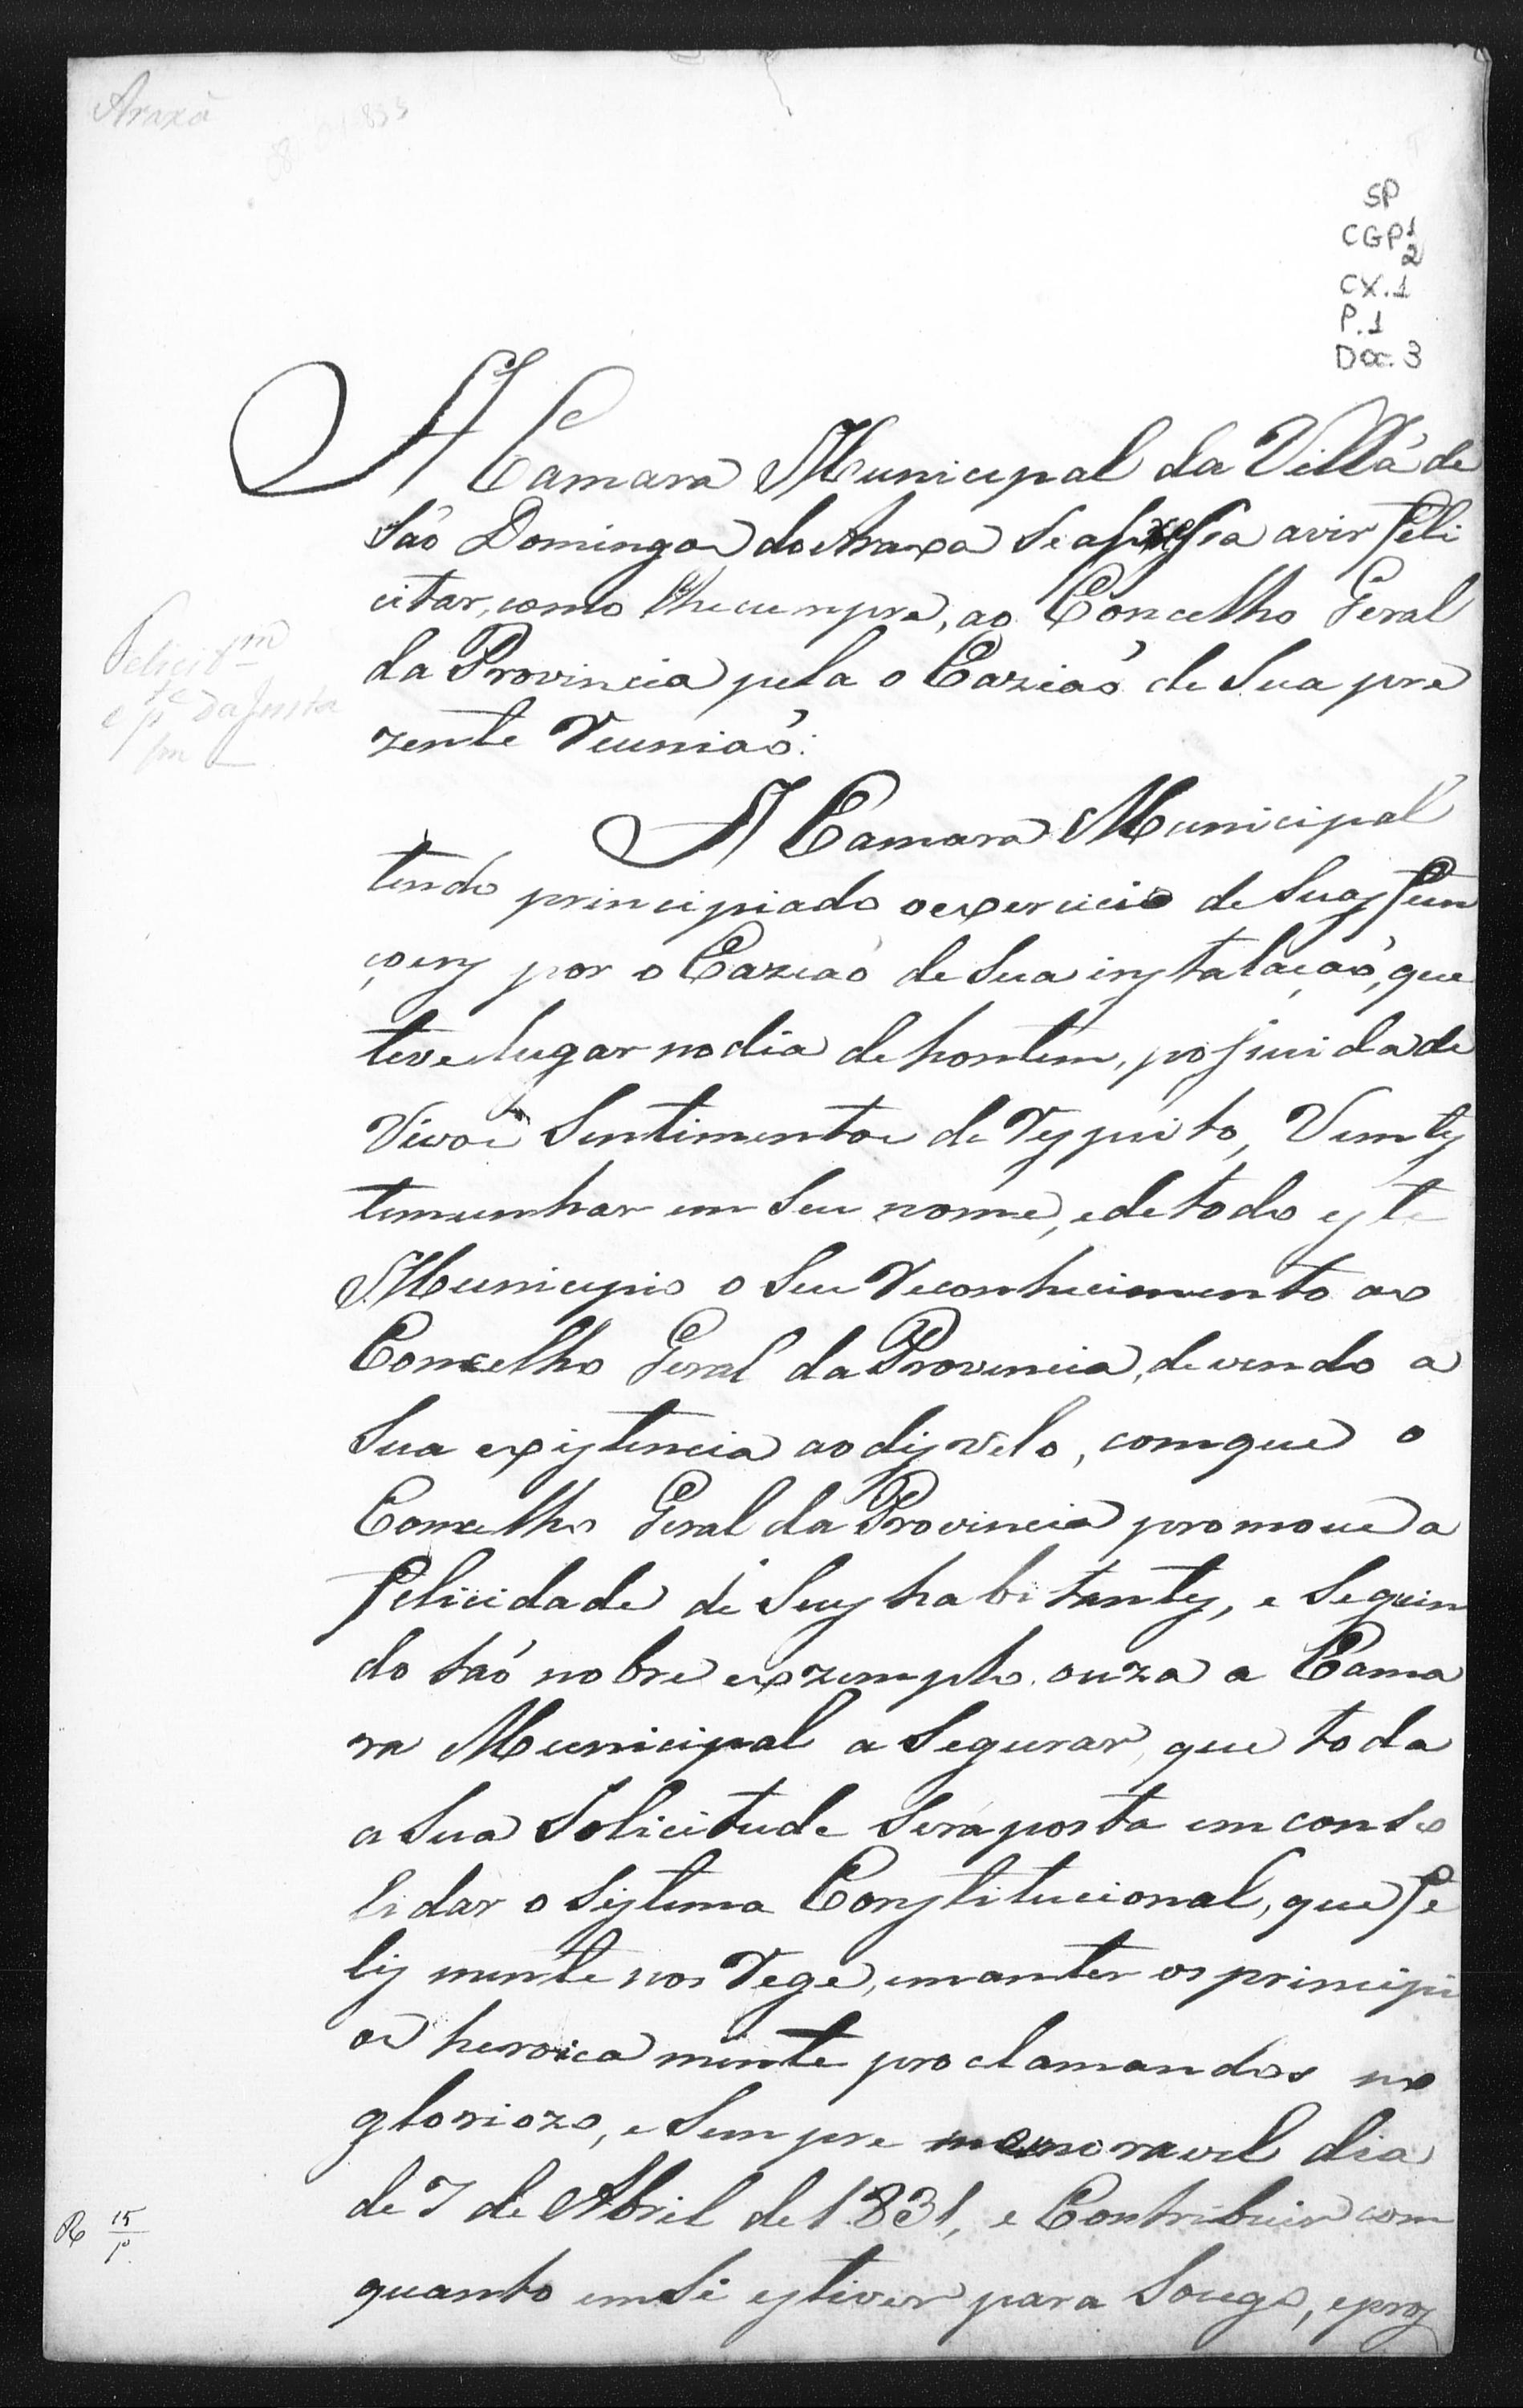 Araxá
SP
CGP 1
2
CX.1
P.1
Doc. 3
A Camara Municipal da Villa de
São Domingos do Araxa Se apressa avir feli
citar, como lhe cumpre, ao Concelho Geral
da Provincia pela o Cazião de Sua pre
zente Reunião.
A Camara Municipal
tendo principiado o exercicio de Suas fun
çoens por o Cazião de Sua instalação, que
teve lugar no dia de hontem, possuida de
Vivos Sentimentos de Respeito, Vem tes
temunhar em Seu nome, e de todo este
Municipio o Seu Reconhecimento ao
Concelho Geral da Provincia, devendo a
Sua existencia ao disvelo, com que o
Concelho Geral da Provincia promove a
felicidade de Seus habitantes, e Seguin
do taõ nobre exzemplo ouza a Cama
ra Municipal a Segurar, que toda
a Sua Solicitude Será posta em conso
lidar o Sistema Constitucional, que fe
lis mente nos Rege, emanter os principi
os heroica mente proclamandos no
gloriozo, e Sempre memoravel dia
de 7 de Abril de 1831, e Contribuir com
quanto em Si estiver para Socego, e pros
Felicit.m
R 15